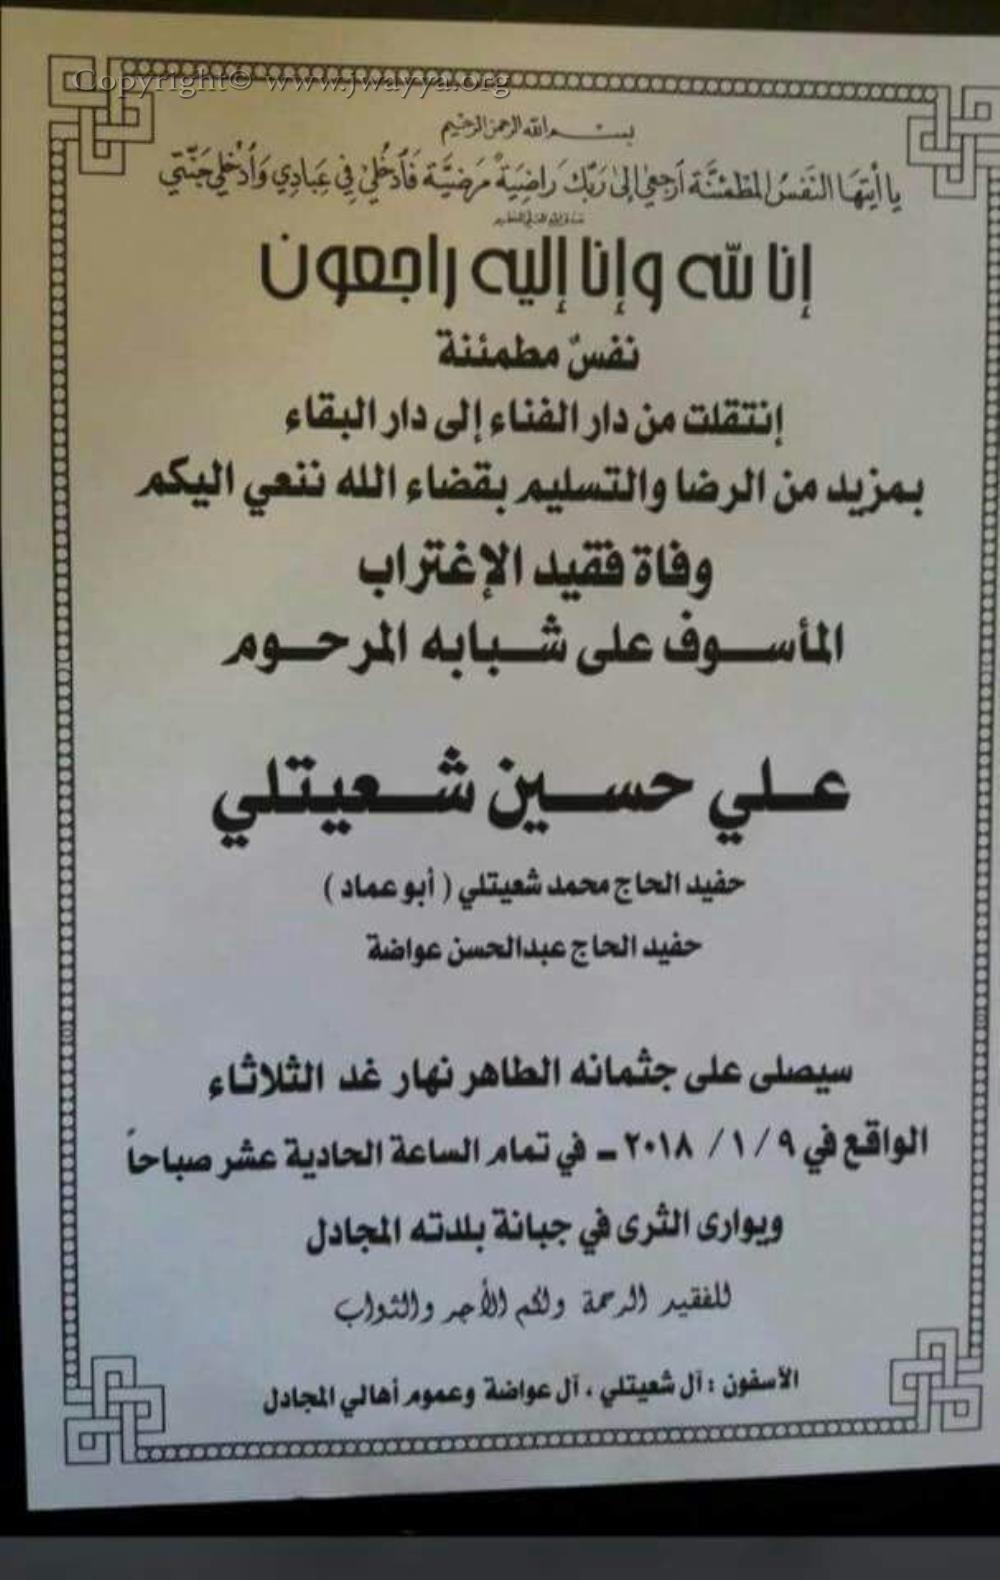 Copyright© www.jwayya.org
بسم الله الرحمن الرحيم
يا أَيتها النَفسُ المطمئنَّة أرجعي إلى رَبّكِ رَاضِيَةً مَرضيَّة فَأدخُلي في عِبَادِي وَأدْخلي جَنَّتي
صدق الله العلي العظيم
إنا لله وإنا إليه راجعون
نفسٌ مطمئنة
إنتقلت من دار الفناء إلى دار البقاء
بمزيد من الرضا والتسليم بقضاء الله ننعي اليكم
وفاة فقيد الإغتراب
المأسوف على شبابه المرحوم
علي حسين شعيتلي
حفيد الحاج محمد شعيتلي ( أبو عماد )
حفيد الحاج عبدالحسن عواضة
سيصلى على جثمانه الطاهر نهار غد الثلاثاء
الواقع في ٩ / ١ / ٢٠١٨ ـ في تمام الساعة الحادية عشر صباحاً
ويوارى الثرى في جبانة بلدته المجادل
للفقيد الرحمة ولكم الأجر والثواب
الآسفون : آل شعيتلي ، آل عواضة وعموم أهالي المجادل